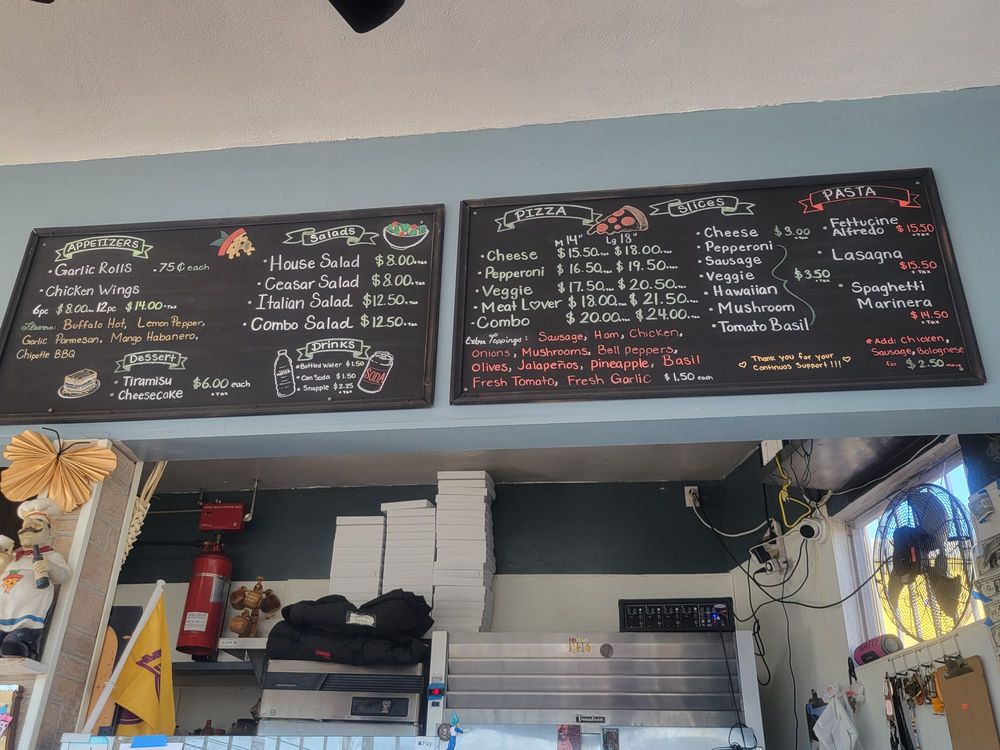 APPETIZERS
• Garlic Rolls .75¢ each
• Chicken Wings
6pc $8.00+TAX 12pc $14.00+TAX
Flavors: Buffalo Hot, Lemon Pepper,
Garlic Parmesan, Mango Habanero,
Chipotle BBQ
Dessert
• Tiramisu
• Cheesecake
$6.00 each
+TAX
Salads
• House Salad $8.00+TAX
• Ceasar Salad $8.00+TAX
• Italian Salad $12.50+TAX
• Combo Salad $12.50+TAX
Drinks
• Bottled Water $1.50
• Can Soda $1.50
• Snapple $2.25
+TAX
SODA
PIZZA
M 14" Lg 18"
• Cheese $15.50+TAX $18.00+TAX
• Pepperoni $16.50+TAX $19.50+TAX
• Veggie $17.50+TAX $20.50+TAX
• Meat Lover $18.00+TAX $21.50+TAX
• Combo $20.00+TAX $24.00+TAX
Extra Toppings: Sausage, Ham, Chicken,
Onions, Mushrooms, Bell peppers,
Olives, Jalapeños, Pineapple, Basil
Fresh Tomato, Fresh Garlic $1.50 each
Slices
• Cheese $3.00
+TAX
• Pepperoni
• Sausage
• Veggie
• Hawaiian
• Mushroom
• Tomato Basil
$3.50
+TAX
Thank you for your
Continuos Support!!!
PASTA
• Fettucine
Alfredo $15.50
+TAX
• Lasagna
$15.50
+TAX
• Spaghetti
Marinera
$14.50
+TAX
* Add: Chicken,
Sausage, Bolognese
for $2.50
Pay